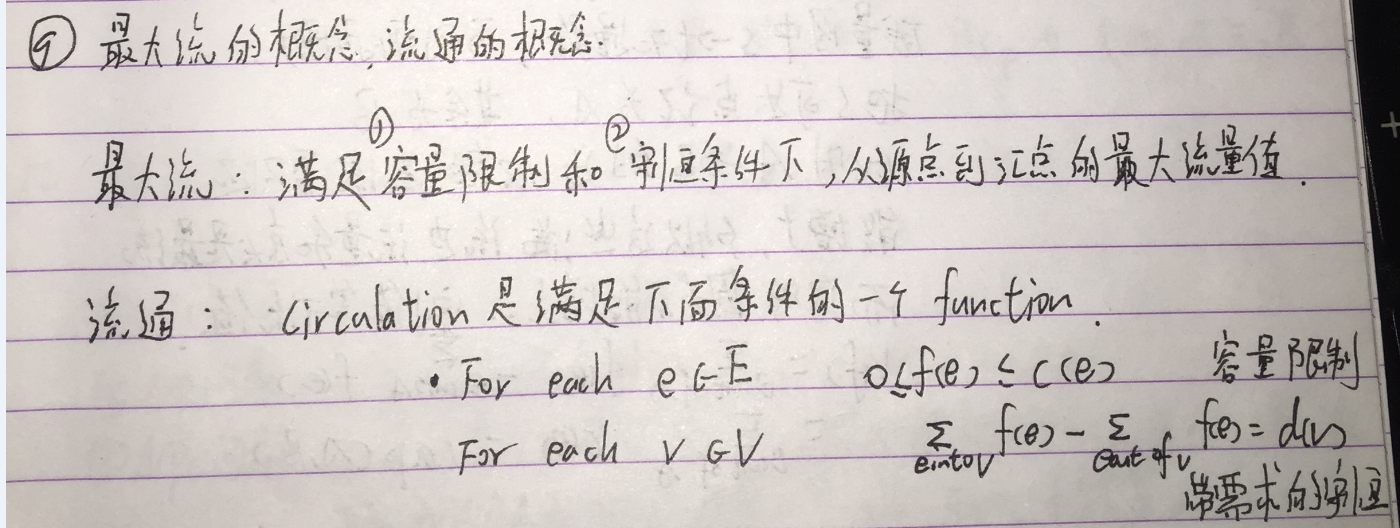 ⑨ 最大流的概念,流通的概念.
最大流:满足①容量限制和②守恒条件下,从源点到汇点的最大流量值.
流通: Circulation 是满足下面条件的一个 function.
· For each e∈E 0≤f(e)≤c(e) 容量限制
For each v∈V ∑_{e into v} f(e) - ∑_{e out of v} f(e) = d(v)
带需求的守恒